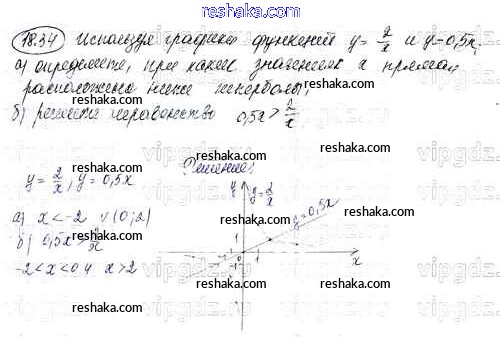 reshaka.com
18.34 Используя графики функций y = 2/x и y=0,5x,
а) определите, при каких значениях x прямая
расположена ниже гиперболы;
б) решите неравенство 0,5x > 2/x
Решение:
y = 2/x, y = 0,5x
а) x < -2 и (0;2)
б) 0,5x > 2/x
-2 < x < 0 и x > 2
y
y = 2/x
y = 0,5x
1
-1
1
x
reshaka.com
reshaka.com
reshaka.com
reshaka.com
reshaka.com
reshaka.com
reshaka.com
reshaka.com
reshaka.com
reshaka.com
vipgdz
vipgdz
vipgdz
vipgdz